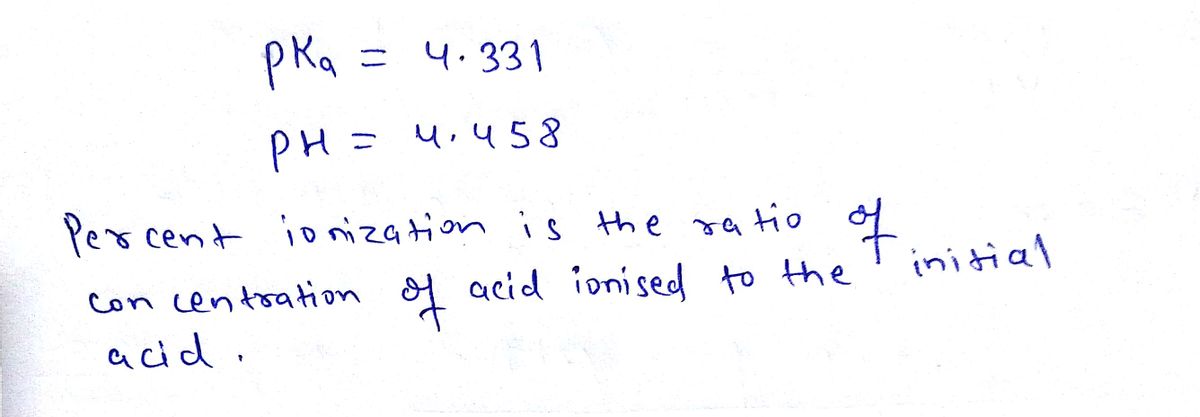 pKa = 4.331
pH = 4.458
Percent ionization is the ratio of
concentration of acid ionised to the initial
acid.